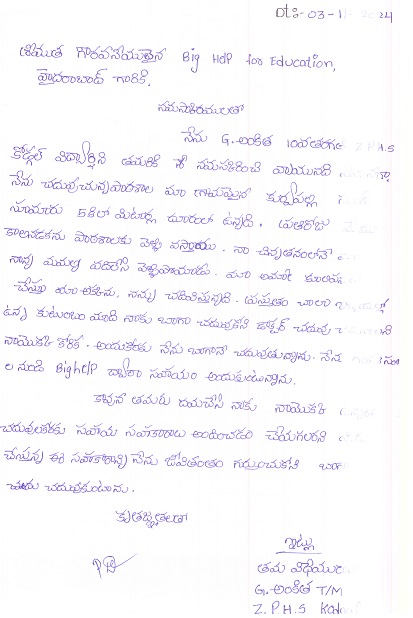 Dt:- 03-11-2024
శ్రీయుత గౌరవనీయులైన Big Help for Education,
హైదరాబాద్ గారికి.
నమస్కారములతో
నేను G. అంకిత 10వతరగతి Z.P.H.S
కోడ్గల్ విద్యార్థిని తమరికి నమస్కరించి వ్రాయునది
నేను చదువుచున్న పాఠశాల మా గ్రామమైన
సుమారు 5కిలో మీటర్ల దూరంలో ఉన్నది. ప్రతిరోజు
కాలినడకను పాఠశాలకు వెళ్ళి వస్తాము. నా చిన్నతనంలోనే
నాన్న మమ్మల్ని వదిలేసి వెళ్ళిపోయాడు. మా అమ్మ కూలిపని
చేస్తూ మా అక్కను, నన్ను చదివిస్తున్నది. ప్రస్తుతం చాలా
ఉన్న కుటుంబం మాది నాకు బాగా చదువుకొని డాక్టర్ చదువు
నాయొక్క కోరిక. అందుకొరకు నేను బాగానే చదువుతున్నాను. నేను
ల నుండి Big help ద్వారా సహాయం అందుకుంటున్నాను.
కావున తమరు దయచేసి నాకు నాయొక్క
చదువులకొరకు సహాయ సహకారాలు అందించడం చేయగలరని
చేస్తున్న ఈ సహకారాన్ని నేను జీవితాంతం గుర్తుంచుకొని
చదువుకుంటాను.
కృతజ్ఞతలతో
ఇట్లు
తమ విధేయు
G. అంకిత T/M
Z.P.H.S